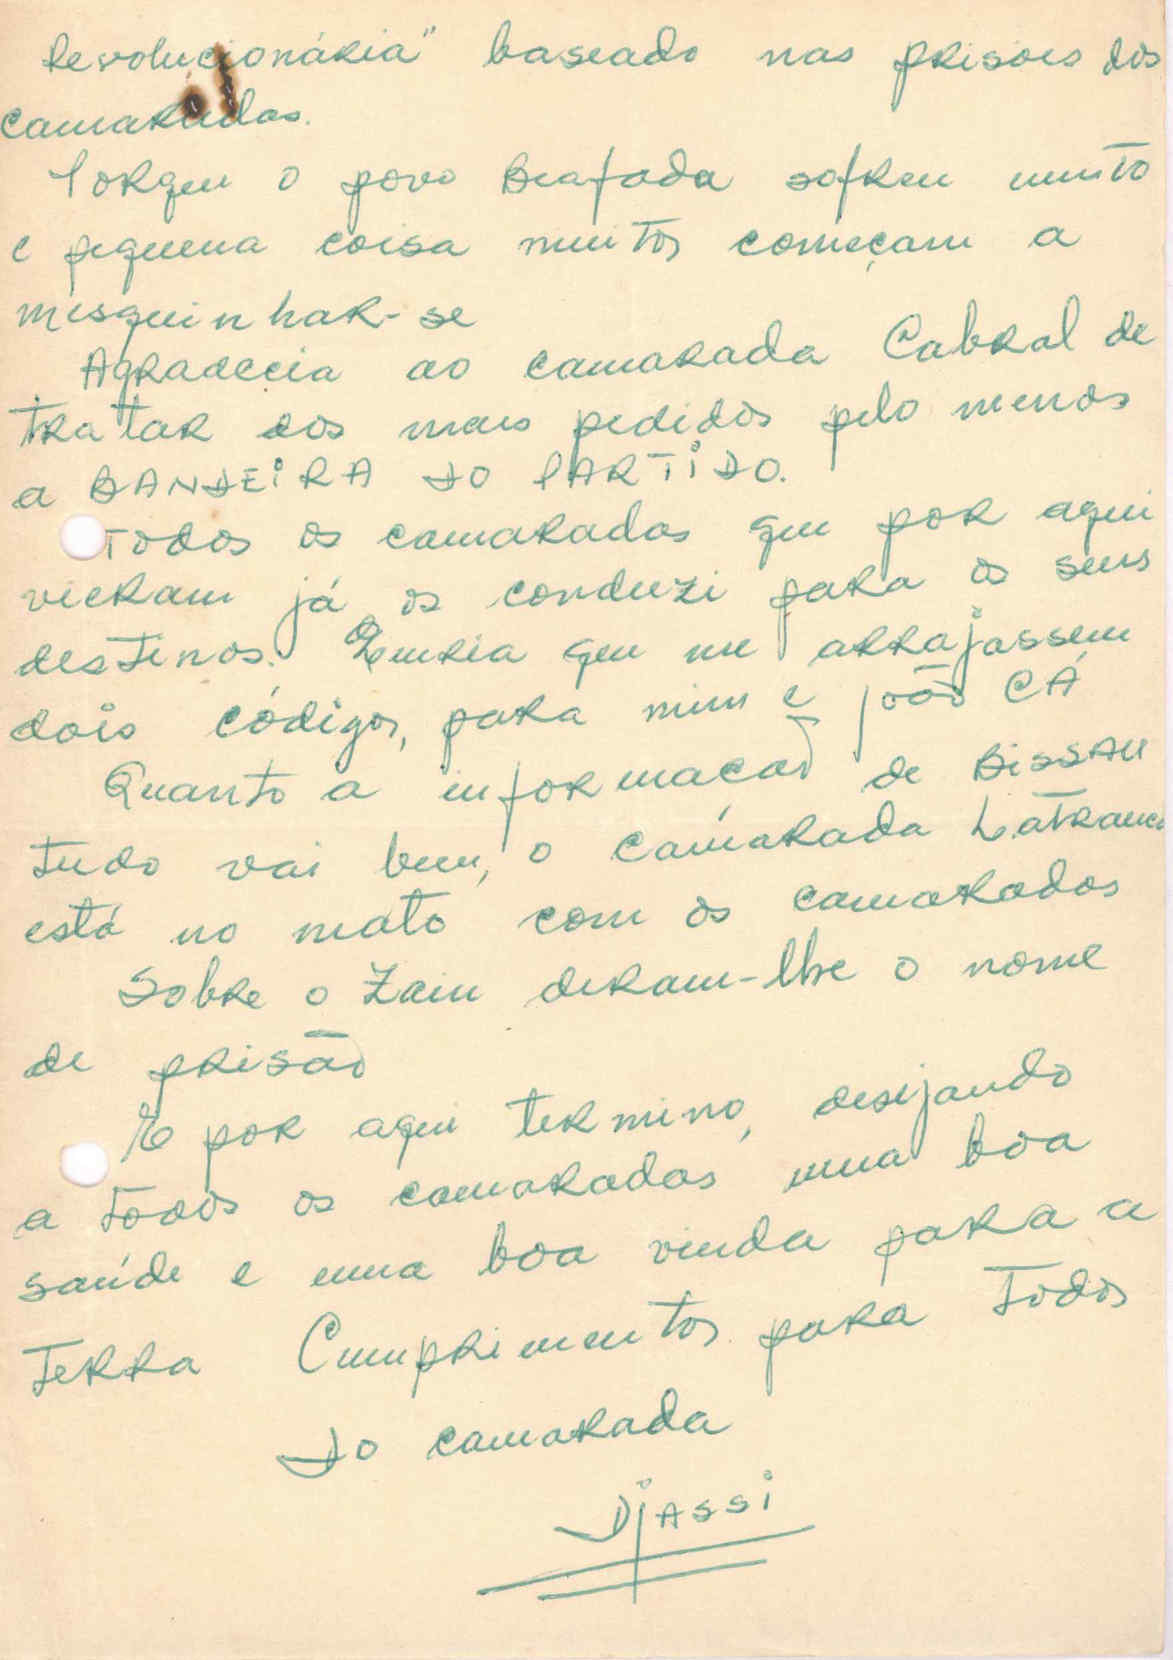 Revolucionária" baseado nas prisões dos
camaradas.
Porque o povo Beafada sofreu muito
e pequena coisa muitos começam a
mesquinhar-se
Agradecia ao camarada Cabral de
tratar dos mais pedidos pelo menos
a BANDEiRA DO PARTiDO.
Todos os camaradas que por aqui
vieram já os conduzi para os seus
destinos. Queria que me arrajassem
dois códigos, para mim e joão CÁ
Quanto a informação de BiSSAU
tudo vai bem, o camarada Latranca
está no mato com os camaradas
Sobre o Zain deram-lhe o nome
de prisão
E por aqui termino, desejando
a todos os camaradas uma boa
saúde e uma boa vinda para a
Terra Cumprimentos para todos
Do camarada
DjASSi